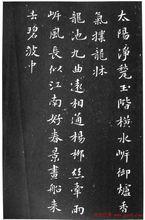 太陽淨甃玉階橫水岍御爐香
氣撲龍牀
龍池九曲遠相通楊柳絲牽兩
岍風長似江南好春景畫船來
去碧波中